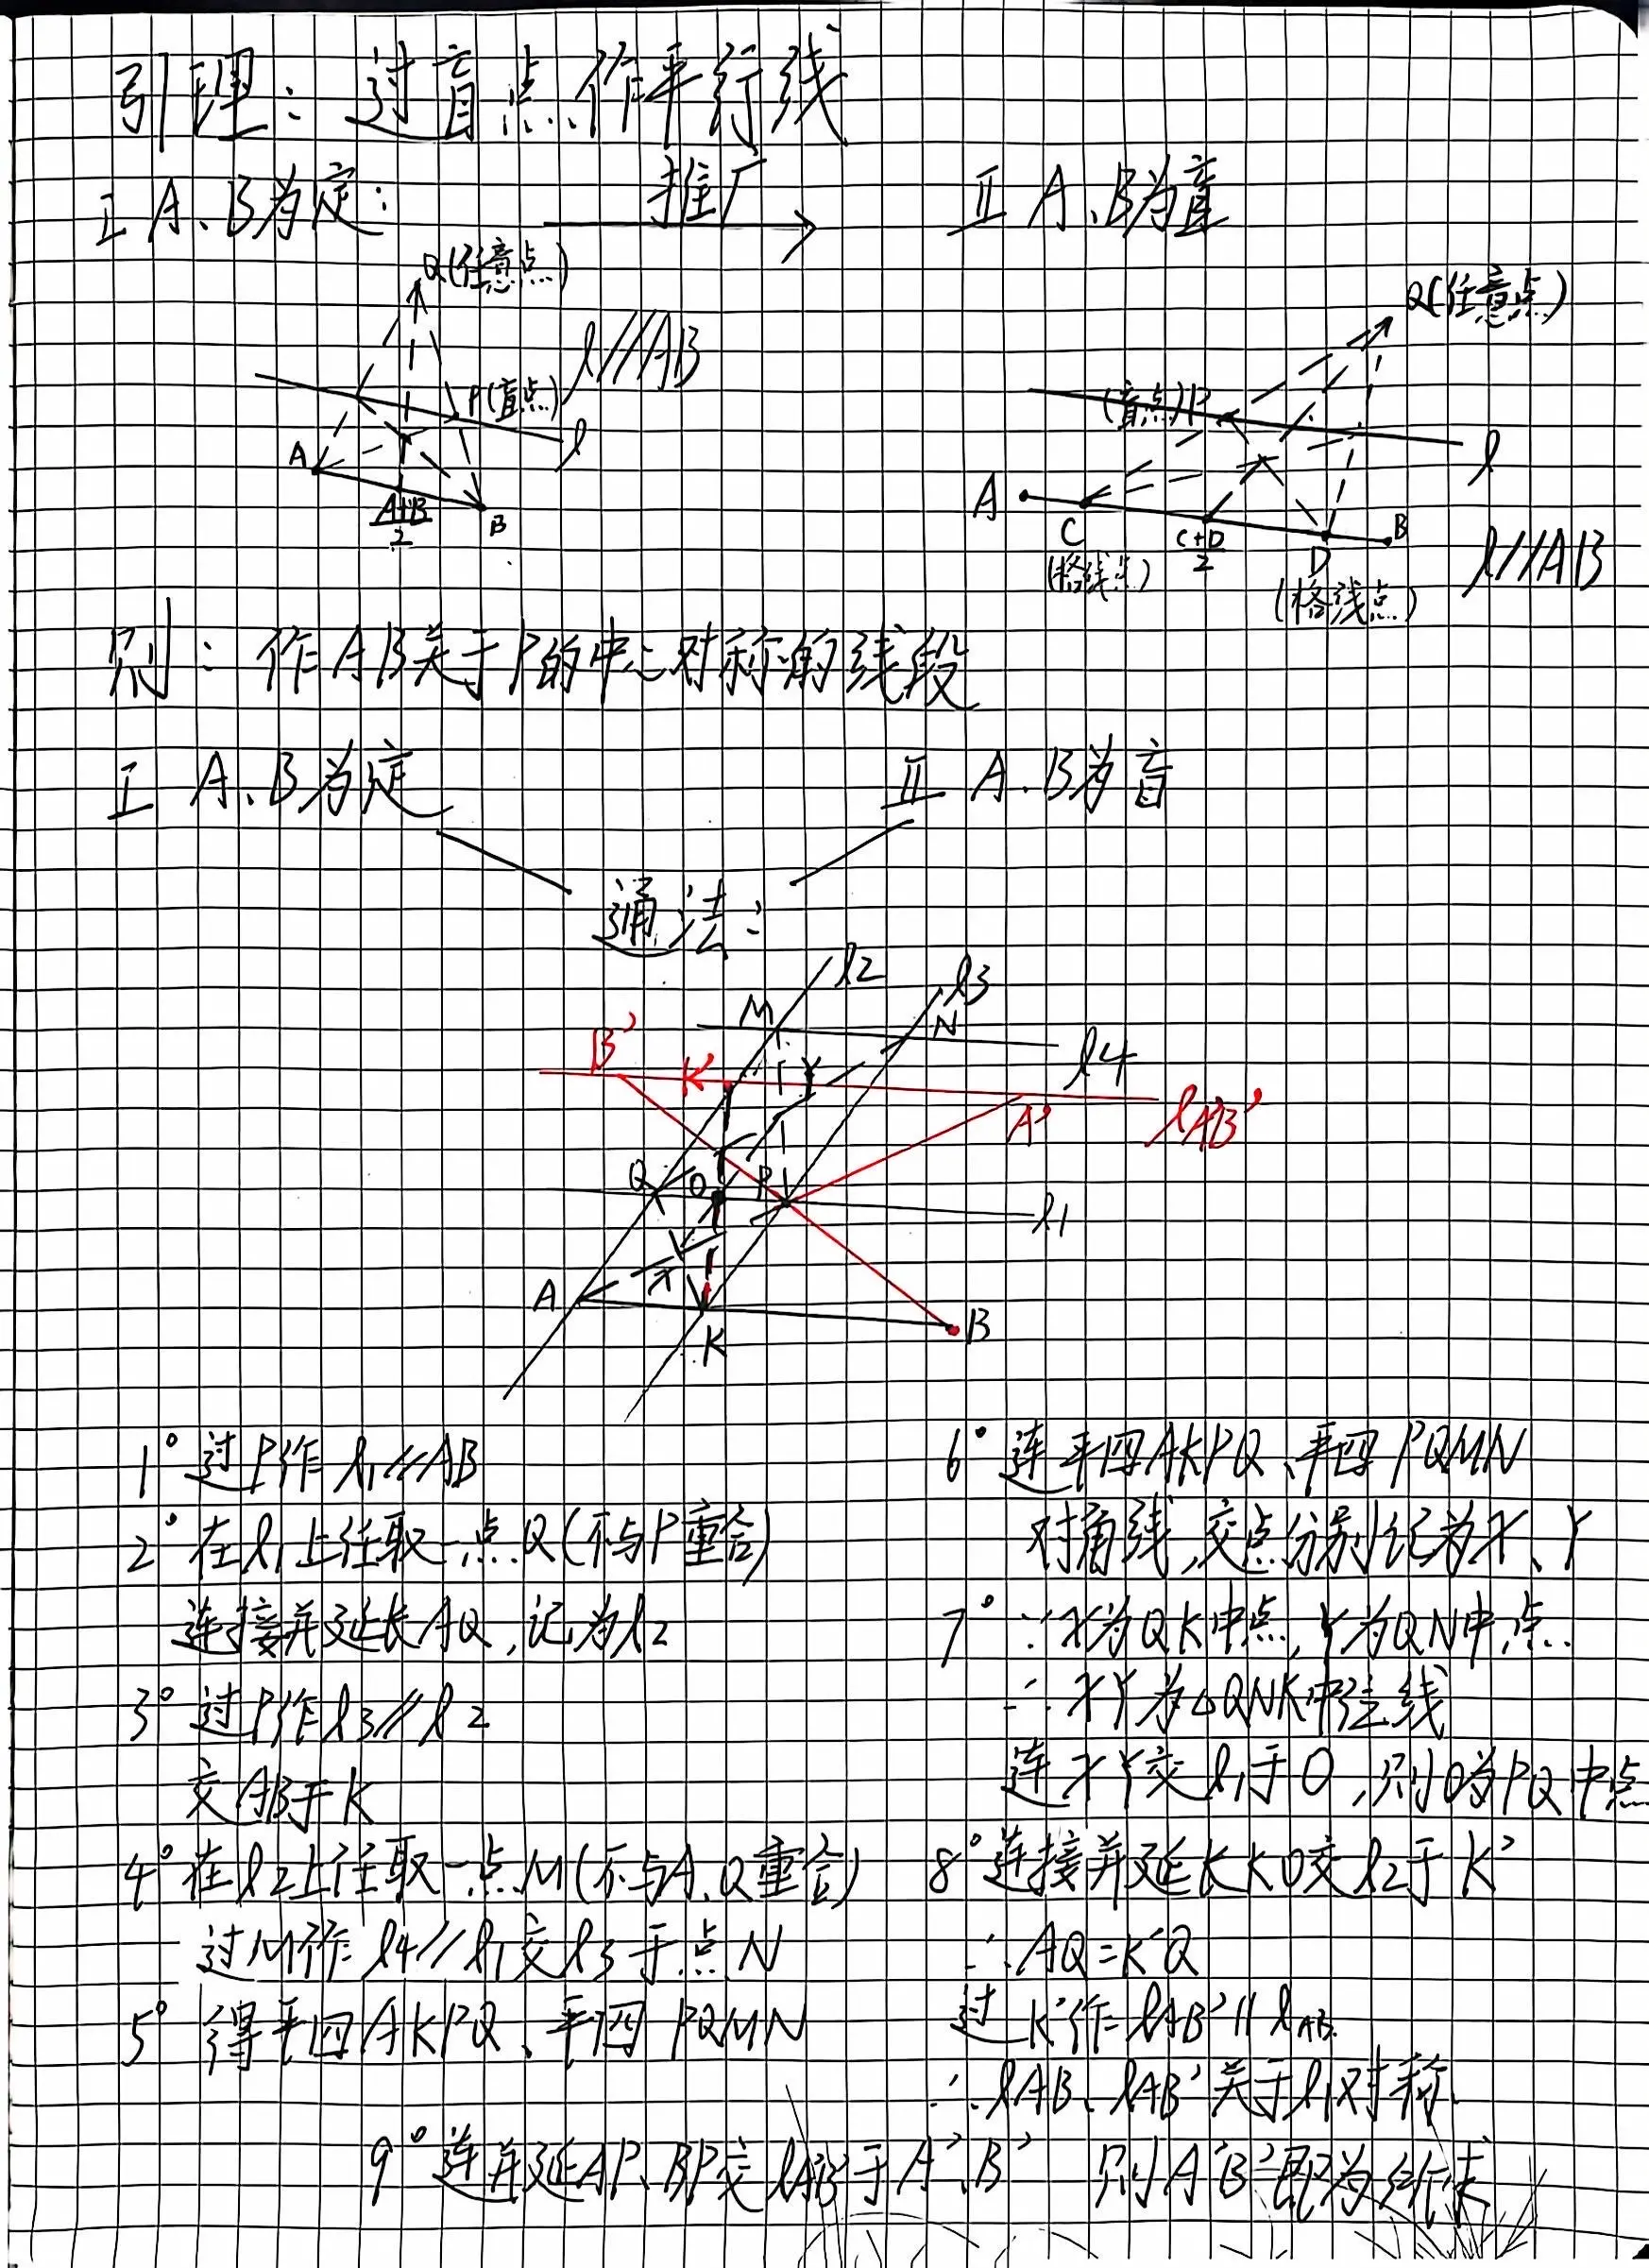 引理：过盲点作平行线
I A、B为定：
推广
II A、B为盲
Q(任意点)
l//AB
P(盲点)
l
A
A+B/2
B
Q(任意点)
(盲点)P
l
A
C
(格线点)
C+D/2
D
(格线点)
B
l//AB
则：作AB关于P的中心对称的线段
I A、B为定
II A、B为盲
通法：
l2
l3
M
N
l4
B'
K'
Y
A'
lAB'
Q
O
P
l1
A
X
K
B
1° 过P作l1//AB
2° 在l1上任取一点Q(不与P重合)
连接并延长AQ，记为l2
3° 过P作l3//l2
交AB于K
4° 在l2上任取一点M(不与A、Q重合)
过M作l4//l1交l3于点N
5° 得平四AKPQ、平四PQMN
6° 连平四AKPQ、平四PQMN
对角线，交点分别记为X、Y
7° ∵X为QK中点，Y为QN中点
∴XY为△QNK中位线
连XY交l1于O，则O为PQ中点
8° 连接并延长KO交l2于K'
∴AQ=K'Q
过K'作lAB'//lAB
∴lAB、lAB'关于l1对称
9° 连并延AP、BP交lA'B'于A'、B' 则A'B'即为所求